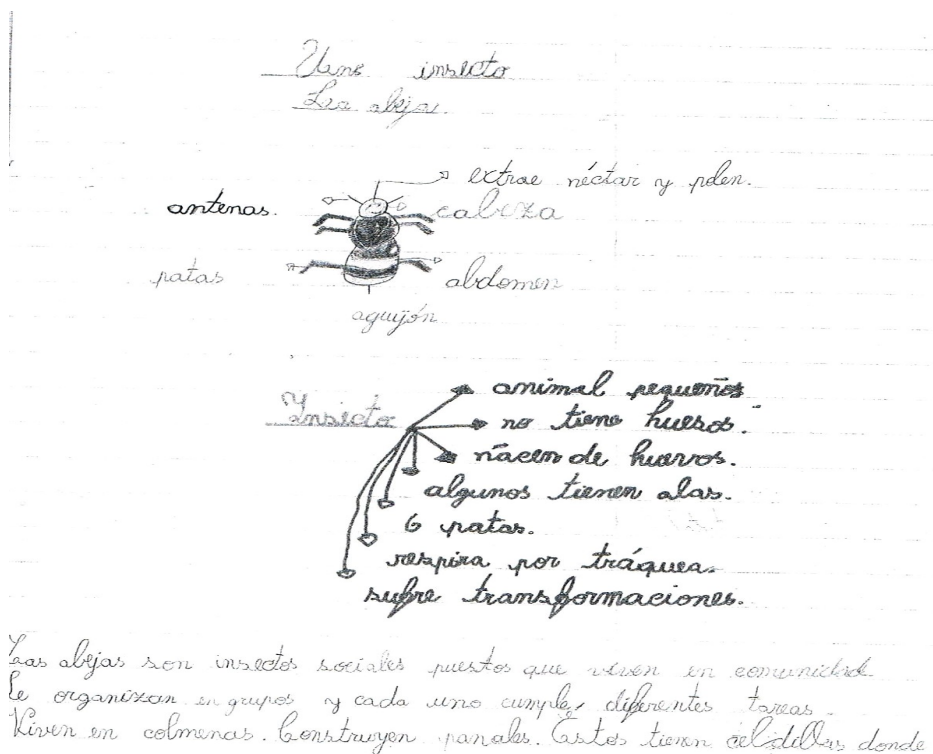 Une insecto
La abeja.
extrae néctar y polen.
antenas. cabeza
patas abdomen
aguijón
Insecto
animal pequeños
no tiene huesos.
nacen de huevos.
algunos tienen alas.
6 patas.
respira por tráquea.
sufre transformaciones.
Las abejas son insectos sociales puestos que viven en comunidad
Se organizan en grupos y cada uno cumple diferentes tareas.
Viven en colmenas. Construyen panales. Estos tienen celdillas donde